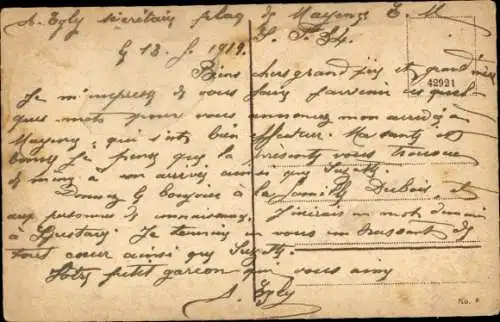 A. Egly secrétaire place de Mayence E. M.
S. P. 34.
Le 13. 1919.
42921
Biens chers grand père et grand mère
Je m'empresse de vous faire parvenir ces quel-
ques mots pour vous annoncer mon arrivée à
Mayence, qui s'est bien effectuée. Ma santé est
bonne Je pense que la présente vous trouvera
de même à son arrivée ainsi que Suzette.
Donnez le bonjour à la famille Dubois, et
aux personnes de connaissance. J'écrirais un mot demain
à Je termine en vous embrassant de
tout cœur ainsi que Suzette.
Votre petit garçon qui vous aime
A. Egly
No. 4